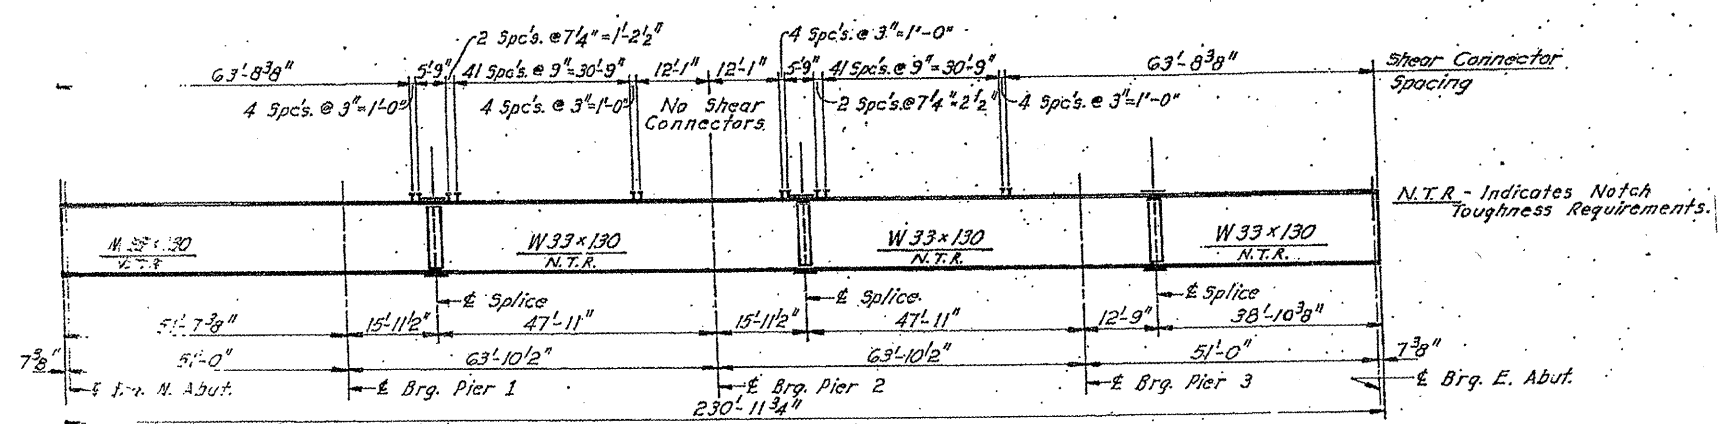 2 Spc's. @ 7¼" = 1'-2½"
4 Spc's. @ 3" = 1'-0"
63'-8⅜"
5'-9"
41 Spc's. @ 9" = 30'-9"
12'-1"
12'-1"
5'-9"
41 Spc's. @ 9" = 30'-9"
63'-8⅜"
Shear Connector
Spacing
4 Spc's. @ 3" = 1'-0"
4 Spc's. @ 3" = 1'-0"
No Shear
Connectors
2 Spc's. @ 7¼" = 2½"
4 Spc's. @ 3" = 1'-0"
N.T.R. - Indicates Notch
Toughness Requirements.
x 130
W 33 x 130
N.T.R.
W 33 x 130
N.T.R.
W 33 x 130
N.T.R.
℄ Splice
℄ Splice
℄ Splice
51'-7⅜"
15'-11½"
47'-11"
15'-11½"
47'-11"
12'-9"
38'-10⅜"
7⅜"
51'-0"
63'-10½"
63'-10½"
51'-0"
7⅜"
℄ N. Abut.
℄ Brg. Pier 1
℄ Brg. Pier 2
℄ Brg. Pier 3
℄ Brg. E. Abut.
230'-11¾"